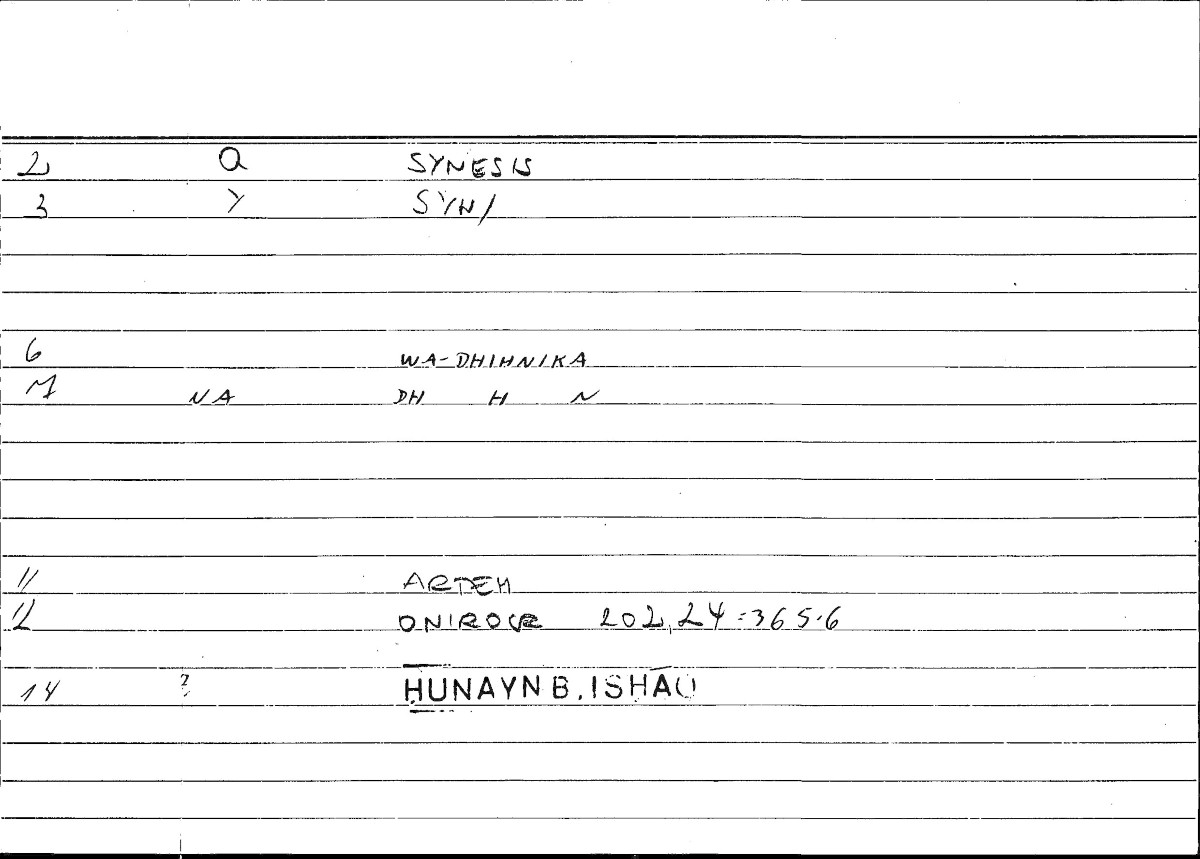 2 a SYNESIS
3 Y SYN/
6 WA-DHIHNIKA
M NA DH H N
11 ARTEM
12 ONIROCR 202,24=365.6
14 ? ḤUNAYN B. ISḤĀQ